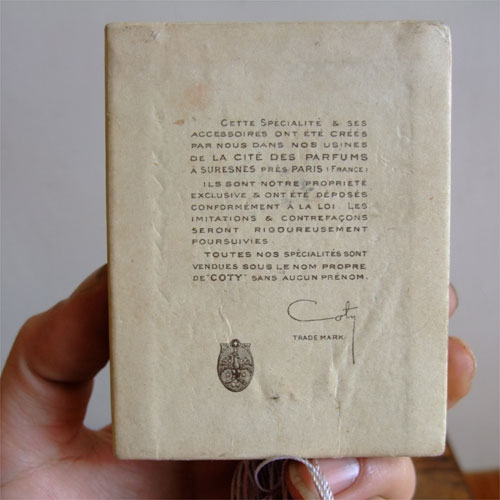 CETTE SPÉCIALITÉ & SES
ACCESSOIRES ONT ÉTÉ CRÉÉS
PAR NOUS DANS NOS USINES
DE LA CITÉ DES PARFUMS
À SURESNES PRÈS PARIS (FRANCE)
ILS SONT NOTRE PROPRIÉTÉ
EXCLUSIVE & ONT ÉTÉ DÉPOSÉS
CONFORMÉMENT À LA LOI. LES
IMITATIONS & CONTREFAÇONS
SERONT RIGOUREUSEMENT
POURSUIVIES.
TOUTES NOS SPÉCIALITÉS SONT
VENDUES SOUS LE NOM PROPRE
DE "COTY" SANS AUCUN PRÉNOM.
Coty
TRADE MARK